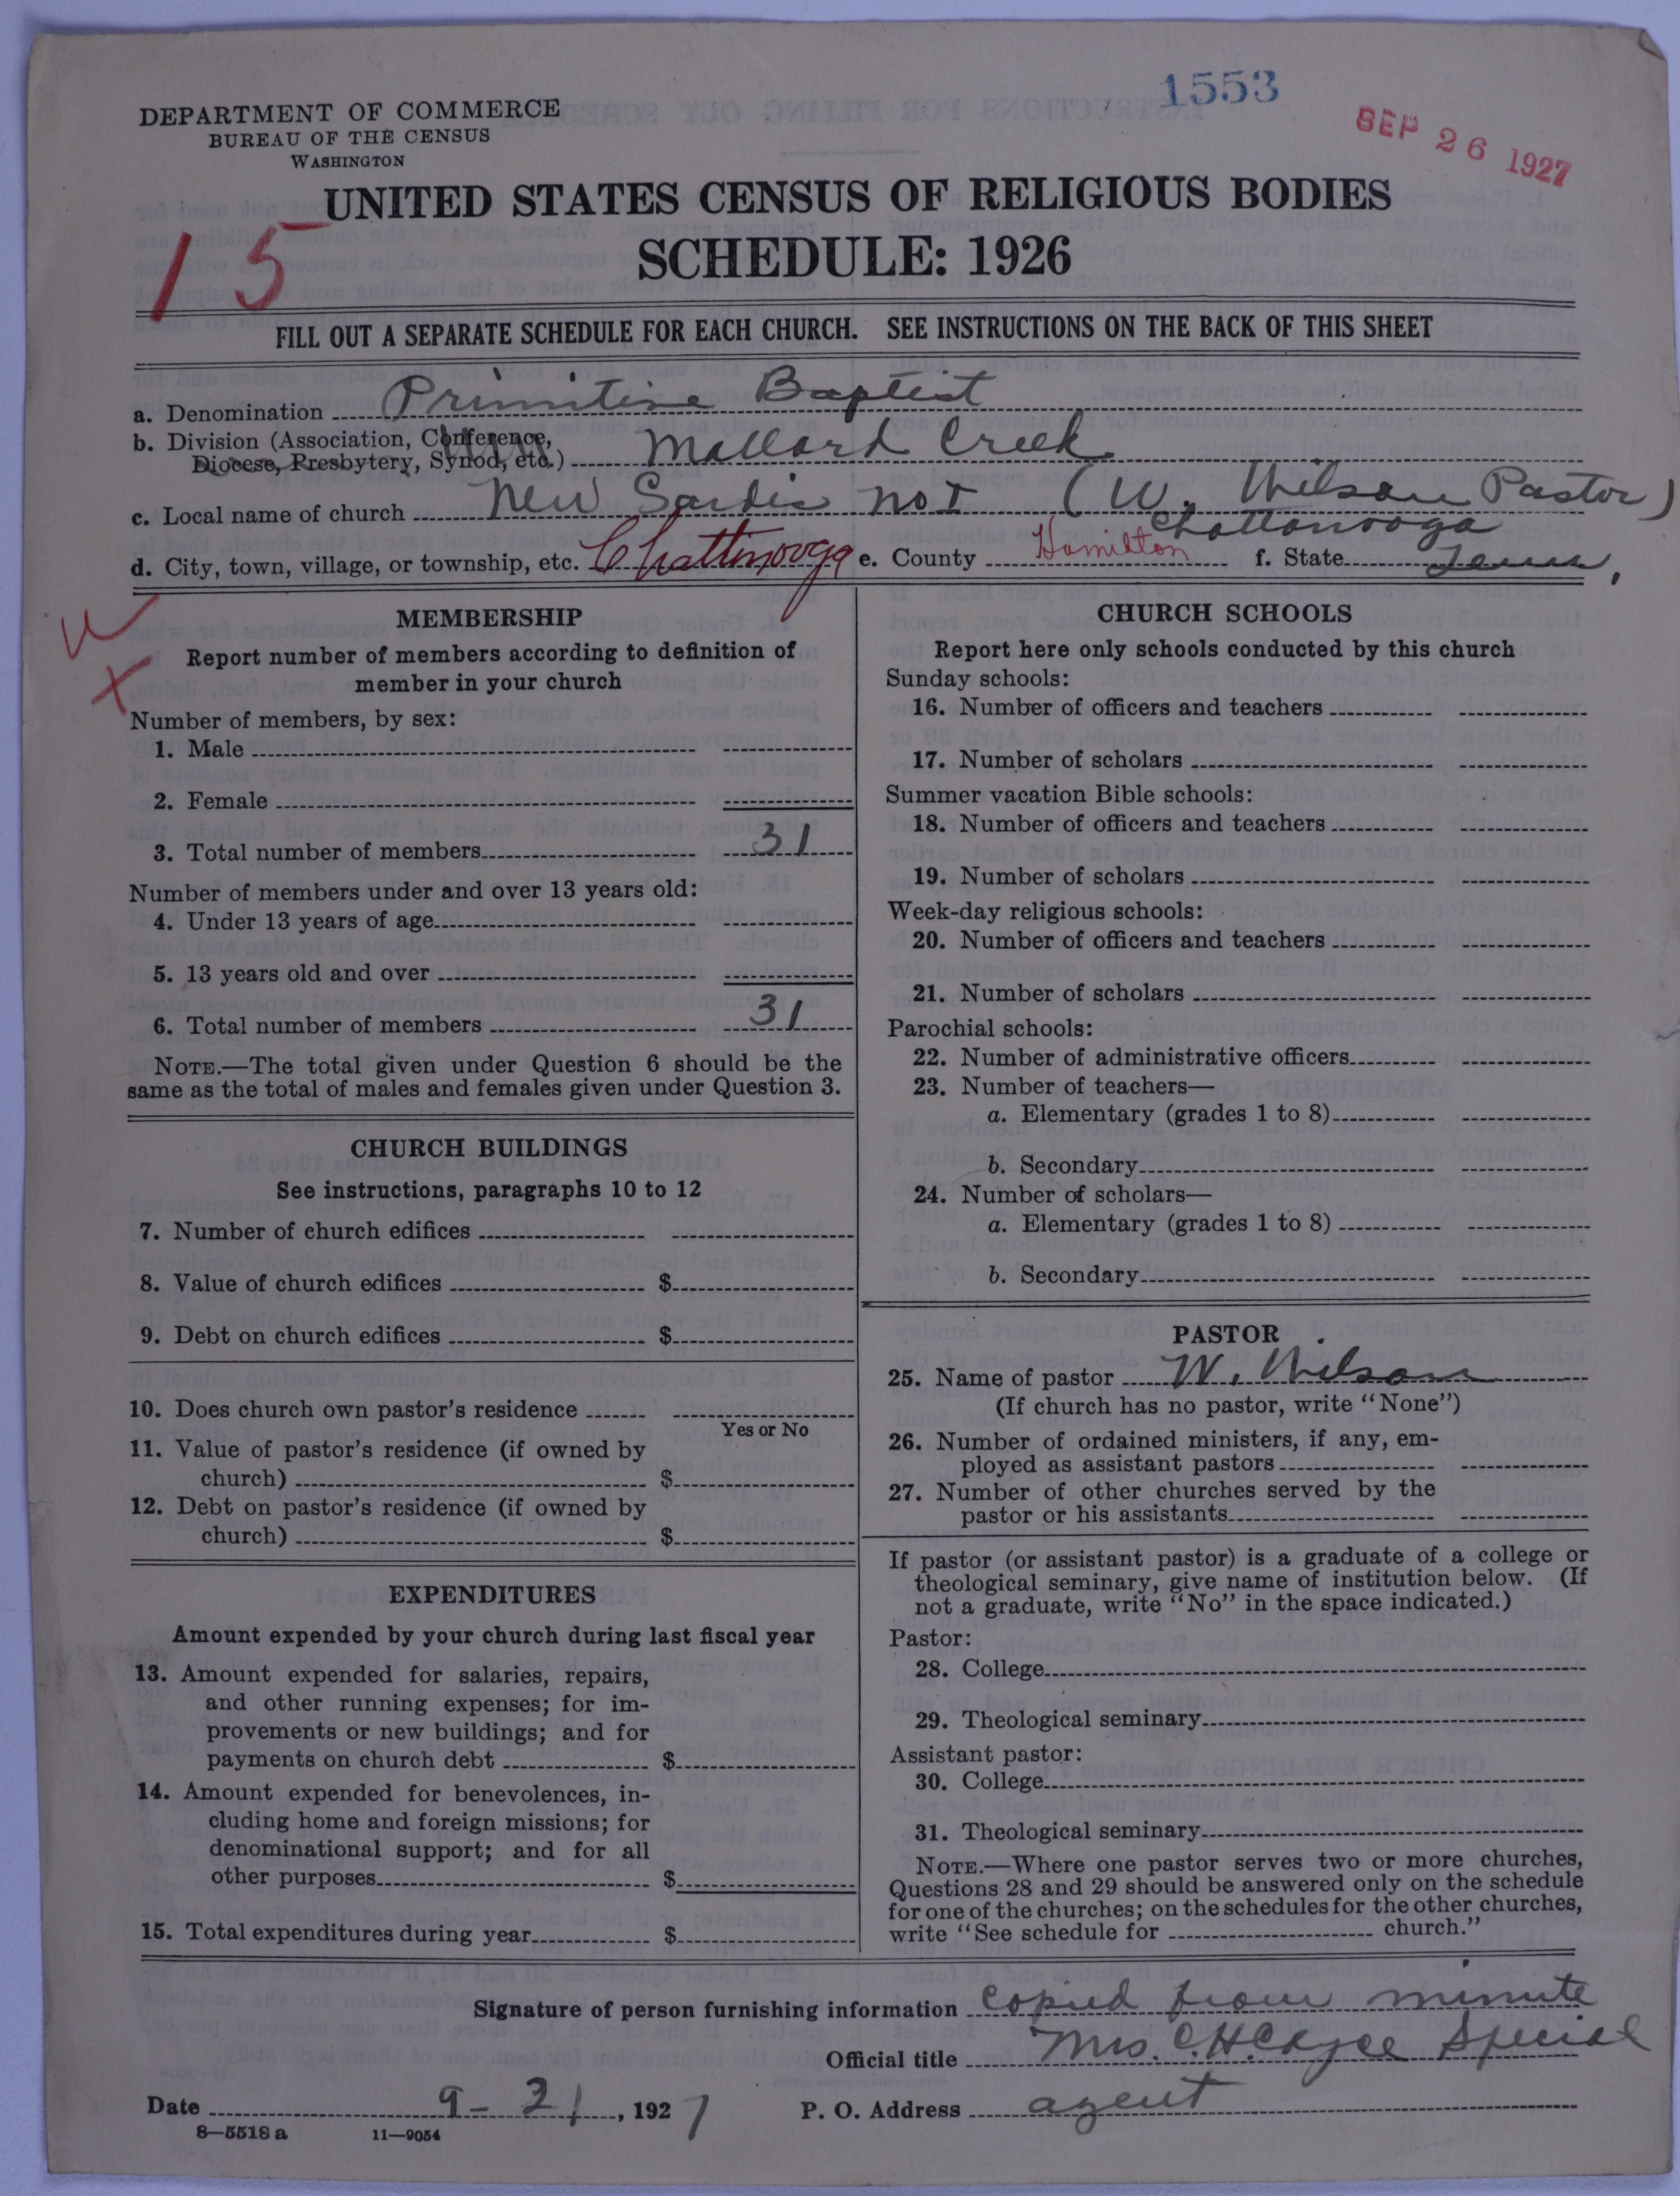 1553
SEP 26 1927
DEPARTMENT OF COMMERCE
BUREAU OF THE CENSUS
WASHINGTON
UNITED STATES CENSUS OF RELIGIOUS BODIES
SCHEDULE: 1926
15
FILL OUT A SEPARATE SCHEDULE FOR EACH CHURCH. SEE INSTRUCTIONS ON THE BACK OF THIS SHEET
a. Denomination Primitive Baptist
b. Division (Association, Conference,
Diocese, Presbytery, Synod, etc.) Mallard Creek
c. Local name of church New Sardis no 1 (W. Wilson Pastor)
Chattanooga
d. City, town, village, or township, etc. Chattinooga e. County Hamilton f. State Tenn,
MEMBERSHIP
Report number of members according to definition of
member in your church
Number of members, by sex:
1. Male
2. Female
3. Total number of members 31
Number of members under and over 13 years old:
4. Under 13 years of age
5. 13 years old and over
6. Total number of members 31
NOTE.—The total given under Question 6 should be the
same as the total of males and females given under Question 3.
CHURCH BUILDINGS
See instructions, paragraphs 10 to 12
7. Number of church edifices
8. Value of church edifices $
9. Debt on church edifices $
10. Does church own pastor's residence
Yes or No
11. Value of pastor's residence (if owned by
church) $
12. Debt on pastor's residence (if owned by
church) $
EXPENDITURES
Amount expended by your church during last fiscal year
13. Amount expended for salaries, repairs,
and other running expenses; for im-
provements or new buildings; and for
payments on church debt $
14. Amount expended for benevolences, in-
cluding home and foreign missions; for
denominational support; and for all
other purposes $
15. Total expenditures during year $
CHURCH SCHOOLS
Report here only schools conducted by this church
Sunday schools:
16. Number of officers and teachers
17. Number of scholars
Summer vacation Bible schools:
18. Number of officers and teachers
19. Number of scholars
Week-day religious schools:
20. Number of officers and teachers
21. Number of scholars
Parochial schools:
22. Number of administrative officers
23. Number of teachers—
a. Elementary (grades 1 to 8)
b. Secondary
24. Number of scholars—
a. Elementary (grades 1 to 8)
b. Secondary
PASTOR
25. Name of pastor W. Wilson
(If church has no pastor, write "None")
26. Number of ordained ministers, if any, em-
ployed as assistant pastors
27. Number of other churches served by the
pastor or his assistants
If pastor (or assistant pastor) is a graduate of a college or
theological seminary, give name of institution below. (If
not a graduate, write "No" in the space indicated.)
Pastor:
28. College
29. Theological seminary
Assistant pastor:
30. College
31. Theological seminary
NOTE.—Where one pastor serves two or more churches,
Questions 28 and 29 should be answered only on the schedule
for one of the churches; on the schedules for the other churches,
write "See schedule for church."
Signature of person furnishing information copied from minute
Official title Mrs. C. H. Cayce Special
Date 9-21, 1927 P. O. Address agent
8—5518 a 11—9054